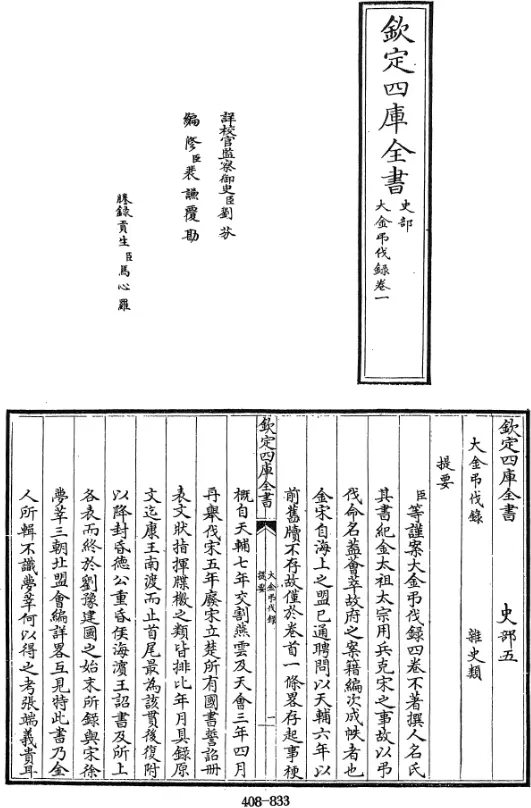 欽定四庫全書
史部
大金弔伐錄卷一
詳校官監察御史臣劉芬
編修臣裴謙覆勘
謄錄貢生臣馬心羅
欽定四庫全書
史部五
大金弔伐錄
雜史類
提要
臣等謹案大金弔伐錄四卷不著撰人名氏
其書紀金太祖太宗用兵克宋之事故以弔
伐命名蓋薈萃故府之案籍編次成帙者也
金宋自海上之盟已通聘問以天輔六年以
前舊牘不存故僅於卷首一條畧存起事梗
欽定四庫全書
大金弔伐錄
提要
一
概自天輔七年交割燕雲及天會三年四月
再舉伐宋五年廢宋立楚所有國書誓詔冊
表文狀指揮牒檄之類皆排比年月具錄原
文迄康王南渡而止首尾最為該貫後復附
以降封昏德公重昏侯海濱王詔書及所上
各表而終於劉豫建國之始末所錄與宋徐
夢莘三朝北盟會編詳畧互見特此書乃金
人所輯不識夢莘何以得之考張端義貴耳
408-833